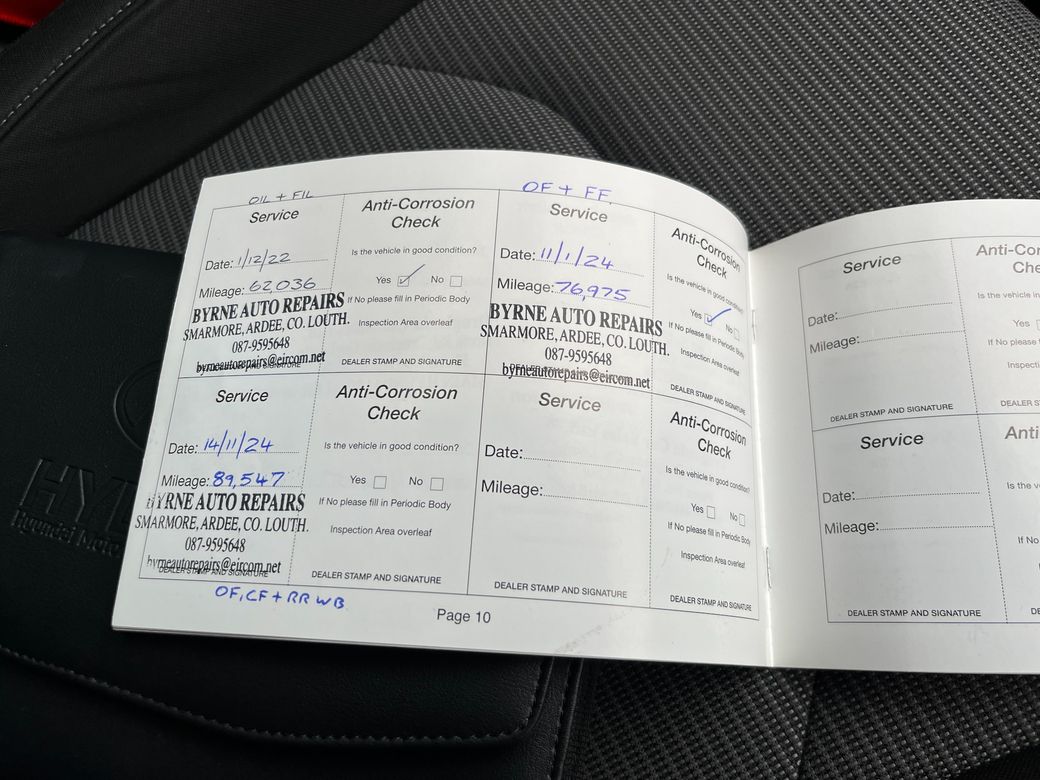 OIL + FIL
Service
Date: 1/12/22
Mileage: 62036
BYRNE AUTO REPAIRS
SMARMORE, ARDEE, CO. LOUTH.
087-9595648
byrneautorepairs@eircom.net
Anti-Corrosion
Check
Is the vehicle in good condition?
Yes No
If No please fill in Periodic Body
Inspection Area overleaf
DEALER STAMP AND SIGNATURE
OF + FF
Service
Date: 11/1/24
Mileage: 76,975
BYRNE AUTO REPAIRS
SMARMORE, ARDEE, CO. LOUTH.
087-9595648
byrneautorepairs@eircom.net
Anti-Corrosion
Check
Is the vehicle in good condition
Yes No
If No please fill in Periodic Body
Inspection Area overleaf
DEALER STAMP AND SIGNATURE
Service
Date: 14/11/24
Mileage: 89,547
BYRNE AUTO REPAIRS
SMARMORE, ARDEE, CO. LOUTH.
087-9595648
byrneautorepairs@eircom.net
DEALER STAMP AND SIGNATURE
OF, CF + RR WB
Anti-Corrosion
Check
Is the vehicle in good condition?
Yes No
If No please fill in Periodic Body
Inspection Area overleaf
DEALER STAMP AND SIGNATURE
Service
Date:
Mileage:
DEALER STAMP AND SIGNATURE
Anti-Corrosion
Check
Is the vehicle in good condition?
Yes No
If No please fill in Periodic Body
Inspection Area overleaf
DEALER STAMP AND SIGNATURE
Page 10
Service
Date:
Mileage:
DEALER STAMP AND SIGNATURE
Anti-Cor
Che
Is the vehicle in g
Yes
If No please
Inspecti
DEALER S
Service
Date:
Mileage:
DEALER STAMP AND SIGNATURE
Anti
Is the v
If No
DE
HY
Hyundai Moto